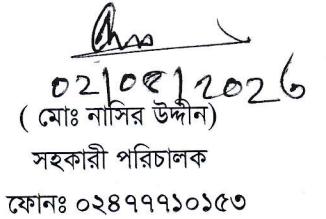 02/08/2026
( মোঃ নাসির উদ্দীন)
সহকারী পরিচালক
ফোনঃ ০২৪৭৭৭১০১৫৩